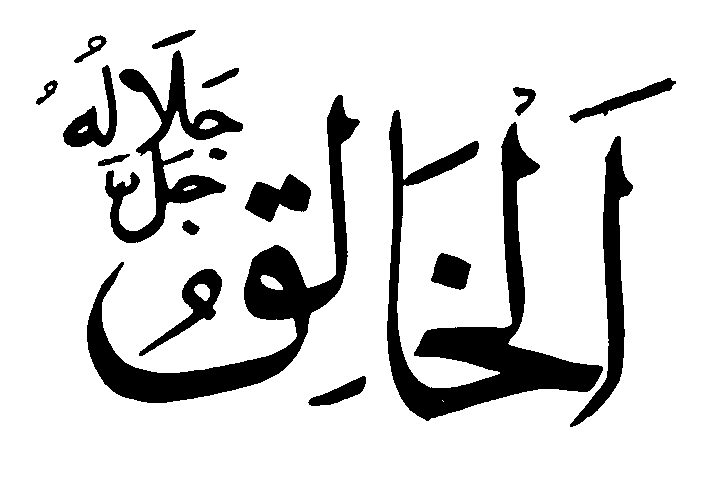 اَلْخَالِقُ
جَلَّ جَلَالُهُ